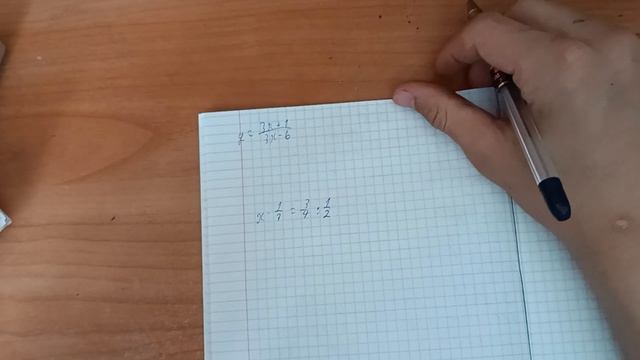 y = \frac{3x+1}{3x-6}
x · \frac{1}{7} = \frac{3}{4} : \frac{1}{2}